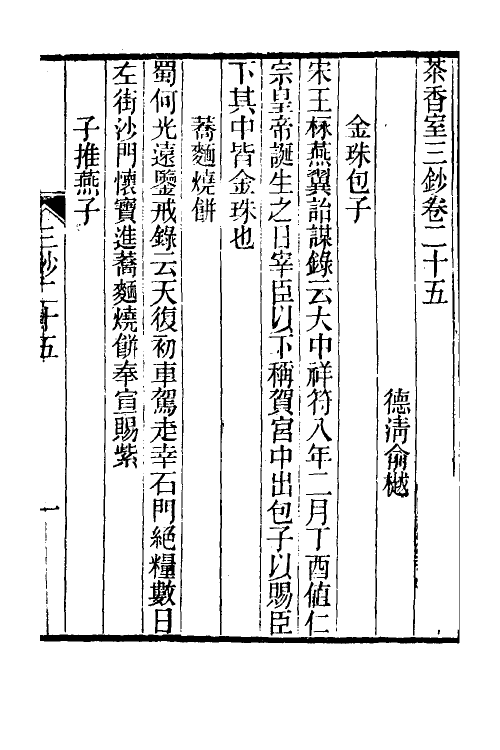 茶香室三鈔卷二十五
德淸俞樾
金珠包子
宋王栐燕翼詒謀錄云大中祥符八年二月丁酉值仁
宗皇帝誕生之日宰臣以下稱賀宮中出包子以賜臣
下其中皆金珠也
蕎麵燒餅
蜀何光遠鑒戒錄云天復初車駕走幸石門絕糧數日
左街沙門懷寶進蕎麵燒餅奉宣賜紫
子推燕子
三鈔二十五
一